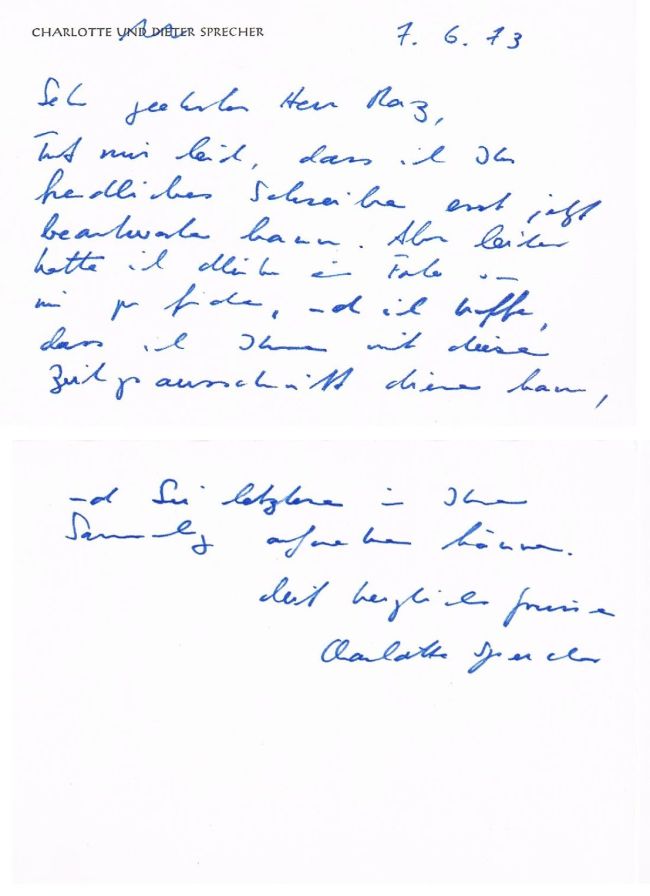 CHARLOTTE UND DIETER SPRECHER
7. 6. 73
Sehr geehrter Herr
Tut mir leid, dass ich Ihr
freundliches Schreiben erst jetzt
beantworten kann. Aber leider
hatte ich
zu finden, und ich hoffe,
dass ich Ihnen mit diesem
Zeitungsausschnitt dienen kann,
und Sie letzteren in Ihre
Sammlung aufnehmen können.
Mit herzlichen Grüssen
Charlotte Sprecher